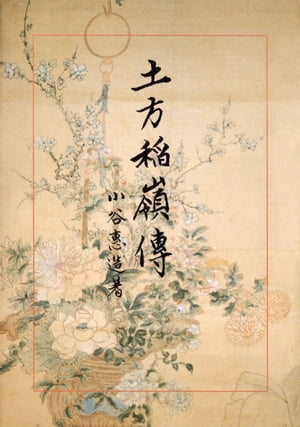 土方稲嶺傳
小谷惠造著